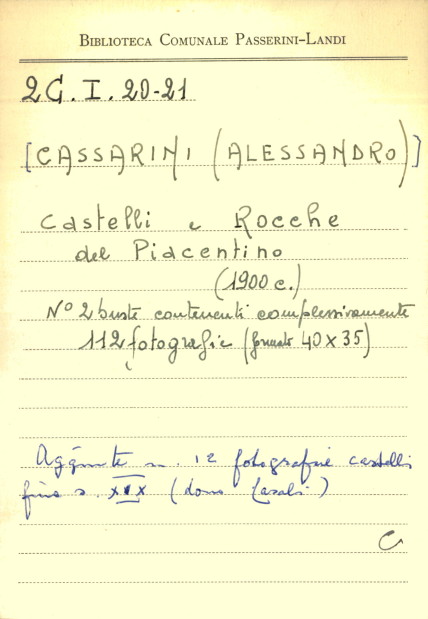 BIBLIOTECA COMUNALE PASSERINI-LANDI
2G. I. 20-21
[CASSARINI (ALESSANDRO)]
Castelli e Rocche
del Piacentino
(1900 c.)
N° 2 buste contenenti complessivamente
112 fotografie (formato 40x35)
Aggiunte n. 12 fotografie castelli
fine s. XIX (dono Casali)
C